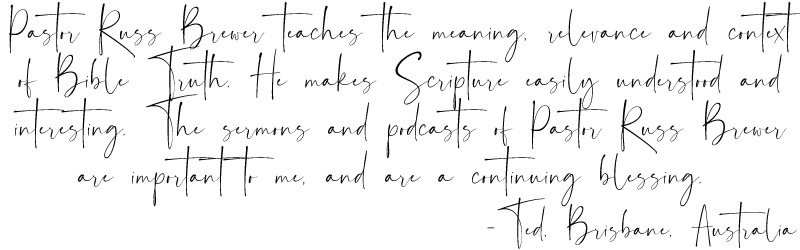 Pastor Russ Brewer teaches the meaning, relevance and context
of Bible Truth. He makes Scripture easily understood and
interesting. The sermons and podcasts of Pastor Russ Brewer
are important to me, and are a continuing blessing.
- Ted, Brisbane, Australia